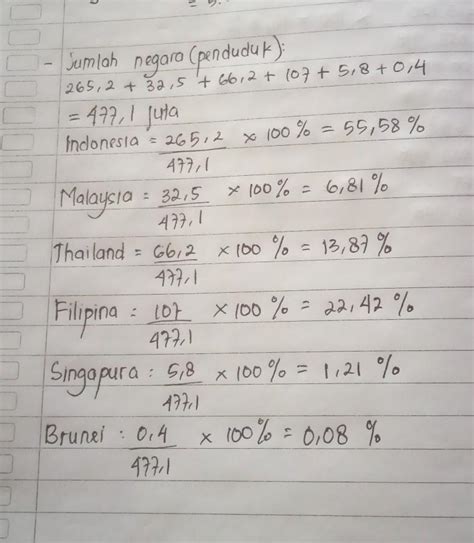 - Jumlah negara (penduduk):
265,2 + 32,5 + 66,2 + 107 + 5,8 + 0,4
= 477,1 juta
Indonesia = 265,2 / 477,1 x 100 % = 55,58 %
Malaysia = 32,5 / 477,1 x 100 % = 6,81 %
Thailand = 66,2 / 477,1 x 100 % = 13,87 %
Filipina : 107 / 477,1 x 100 % = 22,42 %
Singapura : 5,8 / 477,1 x 100 % = 1,21 %
Brunei : 0,4 / 477,1 x 100 % = 0,08 %